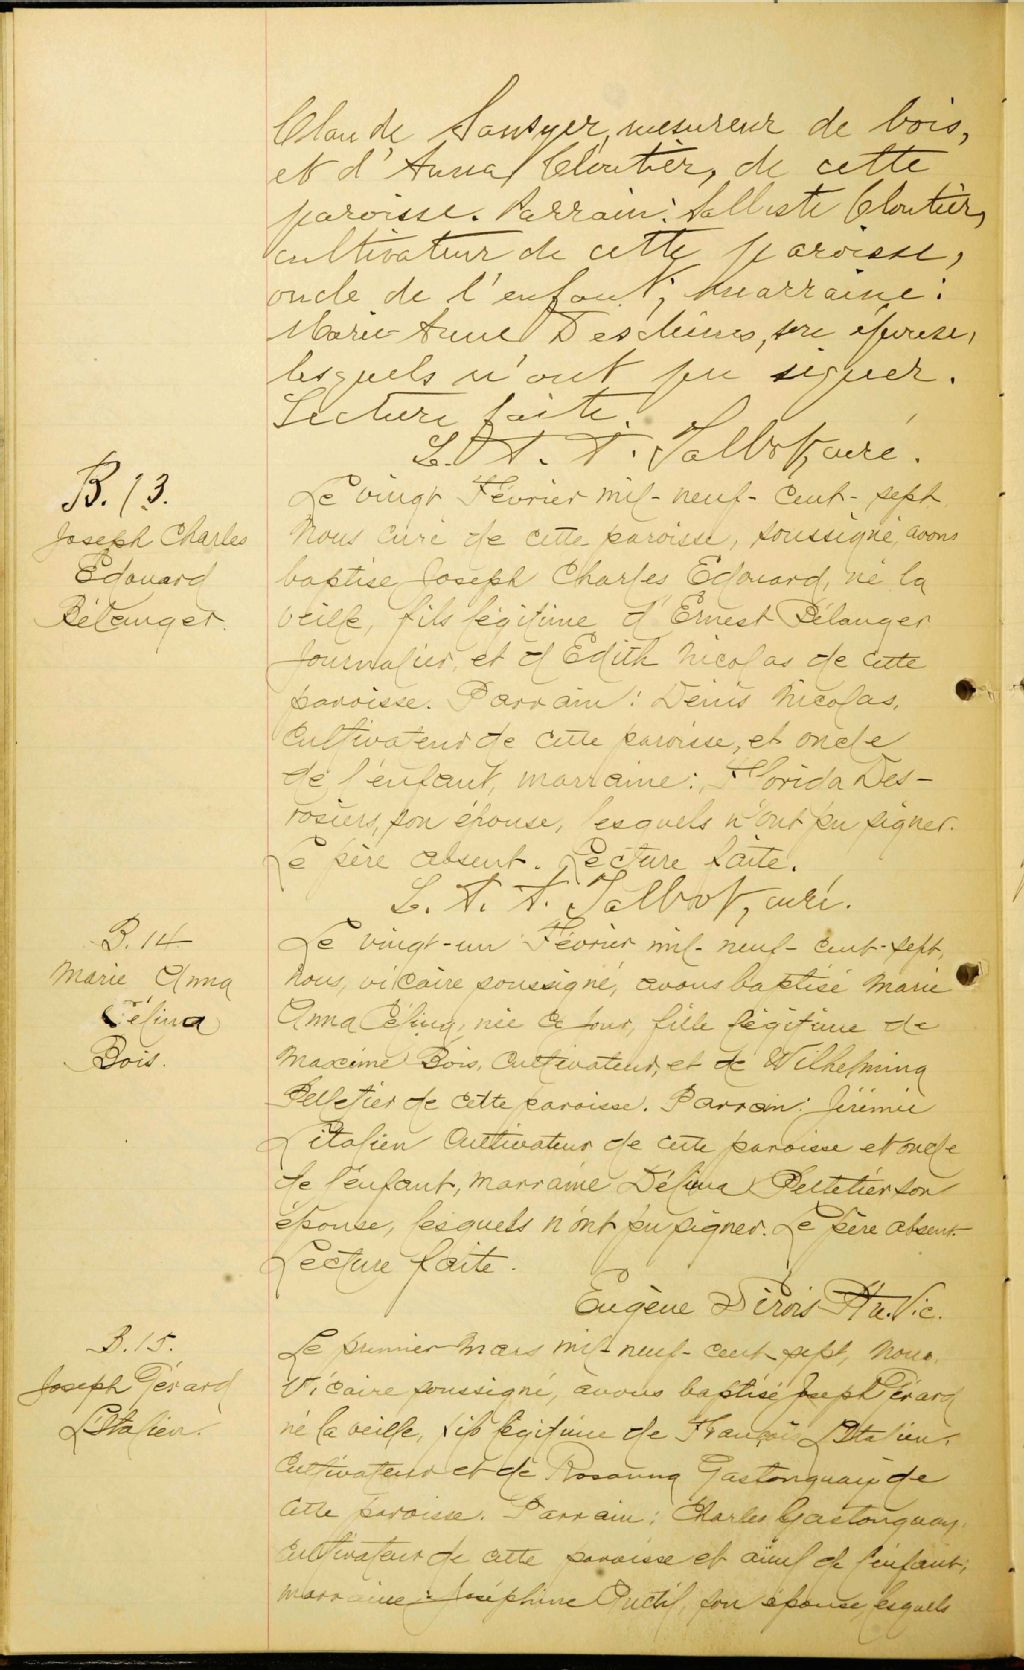 Claude Sawyer, mesureur de bois,
et d'Anna Cloutier, de cette
paroisse. Parrain: Salluste Cloutier,
cultivateur de cette paroisse,
oncle de l'enfant; marraine:
Marie-Anne Deschênes, son épouse,
lesquels n'ont pu signer.
Lecture faite.
L. A. A. Talbot, curé.
B. 13.
Joseph Charles
Edouard
Bélanger.
Le vingt Février mil-neuf-cent-sept
Nous curé de cette paroisse, soussigné, avons
baptisé Joseph Charles Edouard, né la
veille, fils légitime d'Ernest Bélanger
Journalier, et d'Edith Nicolas de cette
paroisse. Parrain: Dénis Nicolas,
Cultivateur de cette paroisse, et oncle
de l'enfant, marraine: Florida Des-
rosiers, son épouse, lesquels n'ont pu signer.
Le père absent. Lecture faite.
L. A. A. Talbot, curé.
B. 14
Marie Anna
Célina
Bois.
Le vingt-un Février mil-neuf-cent-sept,
nous, vicaire soussigné, avons baptisé Marie
Anna Célina, née ce jour, fille légitime de
Maxime Bois, Cultivateur, et de Wilhelmina
Pelletier de cette paroisse. Parrain: Jérémie
Litalien Cultivateur de cette paroisse et oncle
de l'enfant, marraine Délima Pelletier son
épouse, lesquels n'ont pu signer. Le père absent.
Lecture faite.
Eugène Pirois Ptre. Vic.
B. 15.
Joseph Gérard
L'Italien.
Le premier Mars mil-neuf-cent-sept, Nous,
Vicaire soussigné, avons baptisé Joseph Gérard
né la veille, fils légitime de François L'Italien,
Cultivateur et de Rosanna Gastonguay de
cette paroisse. Parrain: Charles Gastonguay,
Cultivateur de cette paroisse et aïeul de l'enfant,
marraine: Joséphine Ouellet, son épouse lesquels